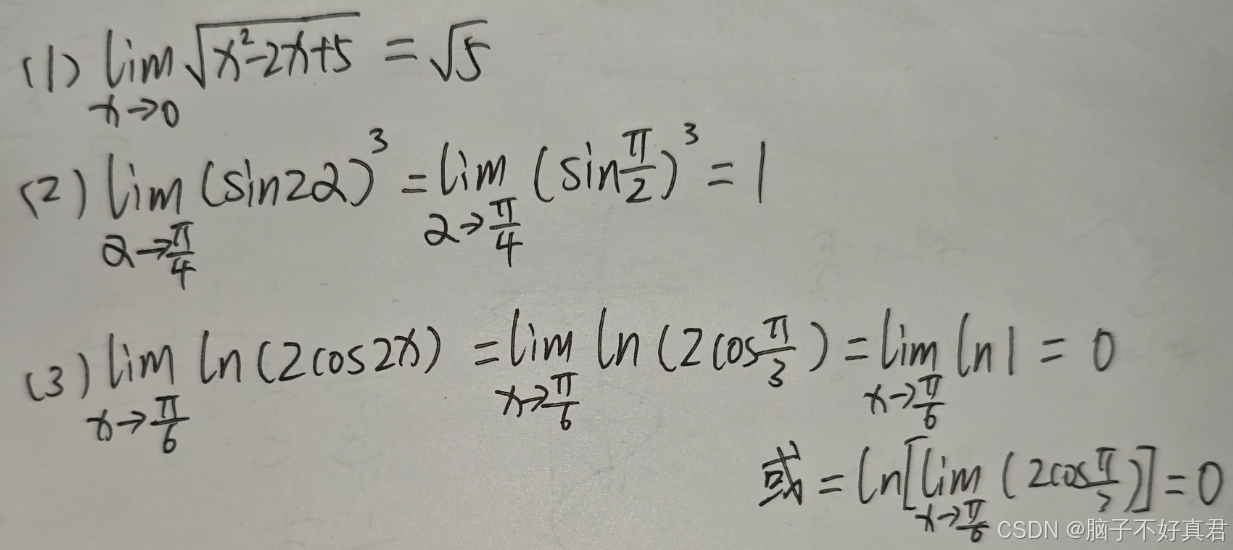 (1) lim x→0 √(x²-2x+5) = √5
(2) lim α→π/4 (sin2α)³ = lim α→π/4 (sin π/2)³ = 1
(3) lim x→π/6 ln(2cos2x) = lim x→π/6 ln(2cos π/3) = lim x→π/6 ln1 = 0
或 = ln[lim x→π/6 (2cos π/3)] = 0
CSDN @脑子不好真君